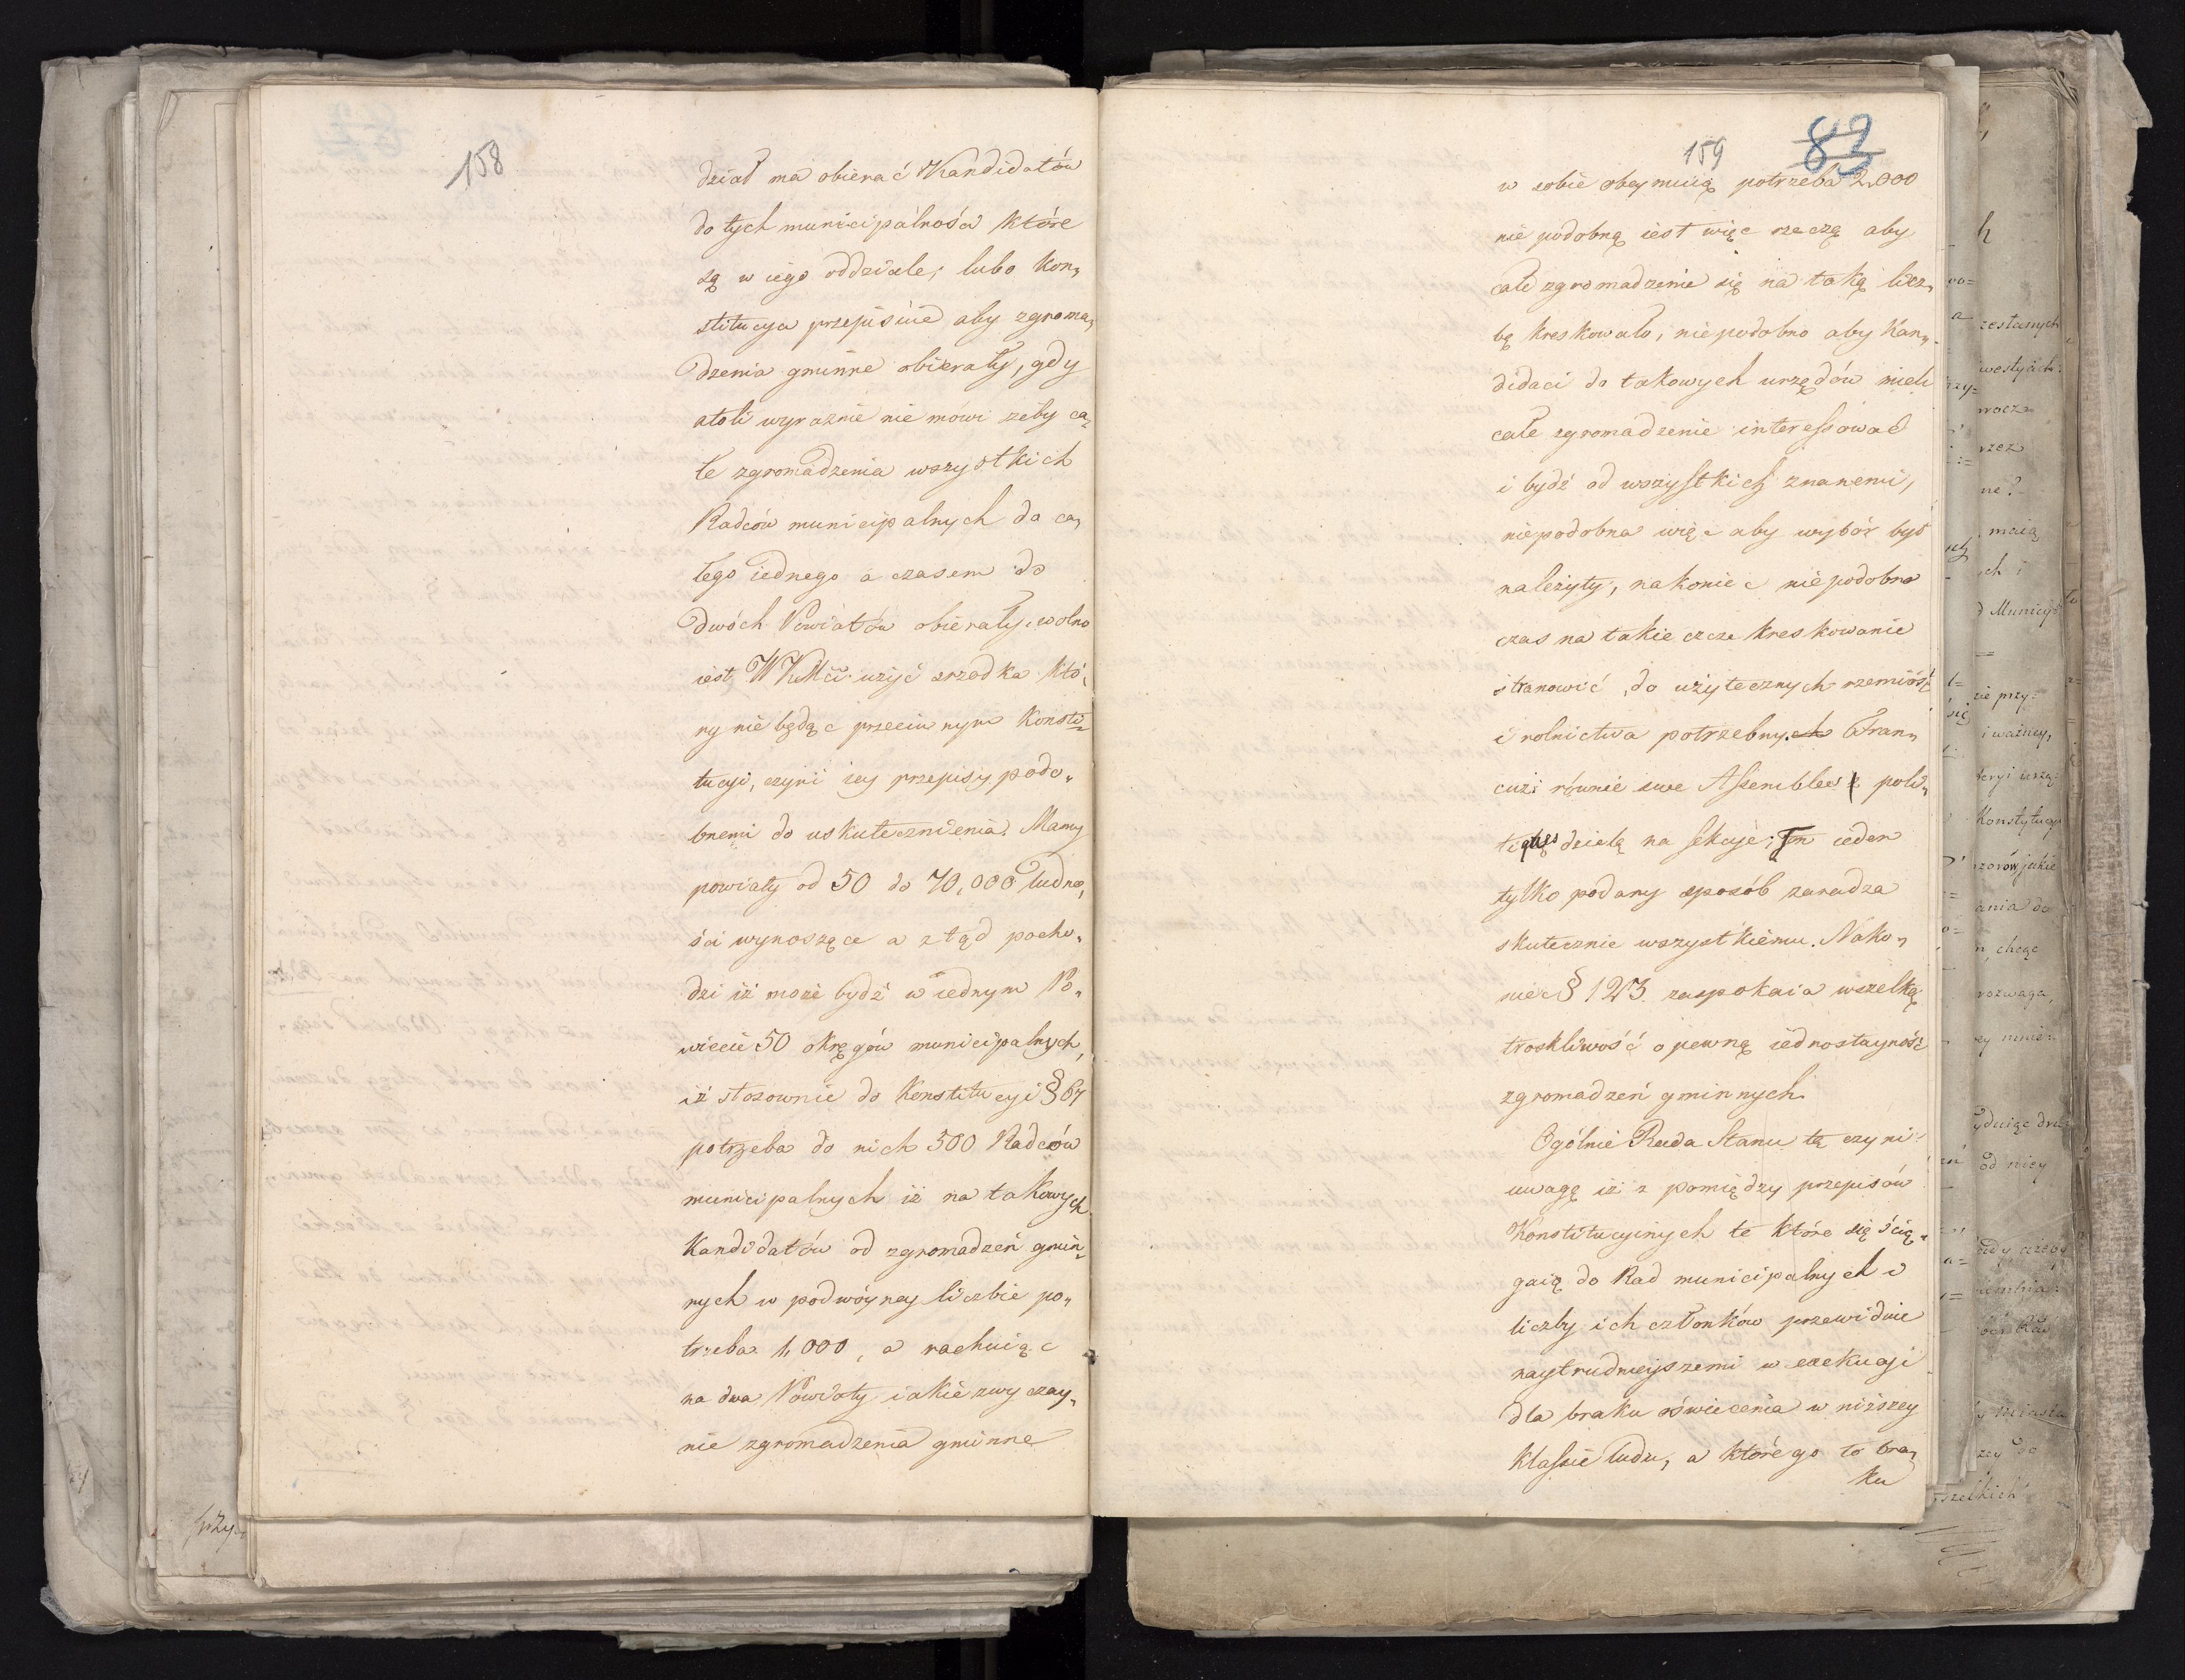 158
dział ma obierać Kandidatów
do tych municipálności które
są w iego oddziale; lubo Kon„
stitucya przepisuie aby zgroma„
dzenia gminne obierały, gdy
atoli wyraznie nie mówi zeby ca„
łe zgromadzenia wszystkich
Radców municipalnych do ca„
łego iednego a czasem do
dwóch Powiatów obierały, wolno
iest WKMći użyć srzodka któ„
ry nie będąc przeciwnym Konsti„
tucyi, czyni iey przepisy podo„
bnemi do uskutecznienia. Mamy
powiaty od 50 do 70,000 ludno„
ści wynoszące a ztąd pocho„
dzi iż może bydź w iednym Po„
wiecie 50 okręgów municipalnych,
iż stosownie do Konstitucyi § 67
potrzeba do nich 500 Radców
municipalnych iż na takowych
Kandidatów od zgromadzeń gmin„
nych w podwóyney liczbie po„
trzeba 1,000, a rachuiąc
na dwa Powiaty iakie zwyczay„
nie zgromadzenia gminne
159
82
w sobie obeymuią potrzeba 2,000
nie podobną iest więc rzeczą aby
całe zgromadzenie się na taką licz„
bę kreskowało, niepodobno aby Kan„
didaci do takowych urzędów mieli
całe zgromadzenie interessować
i bydź od wszystkich znanemi,
niepodobna więc aby wybór był
należyty, nakoniec niepodobna
czas na takie czcze kreskowanie
stanowić, do użytecznych rzemiósł
i rolnictwa potrzebny. Fran„
cuzi równie swe Assemblees poli„
tiques dzielą na sekcye; Ten ieden
tylko podany sposób zaradza
skutecznie wszystkiému. Nako„
niec § 123 zaspokaia wszelką
troskliwość o pewną iednostayność
zgromadzeń gminnych.
Ogólnie Rada Stanu tę czyni
uwagę iż z pomiędzy przepisów
Konstitucyinych te które się ścią„
gaią do Rad municipalnych i
liczby ich członków przewiduie
naytrudnieyszemi w exekucyi
dla braku oświecenia w niższey
klassie ludu, a którego to bra„
ku